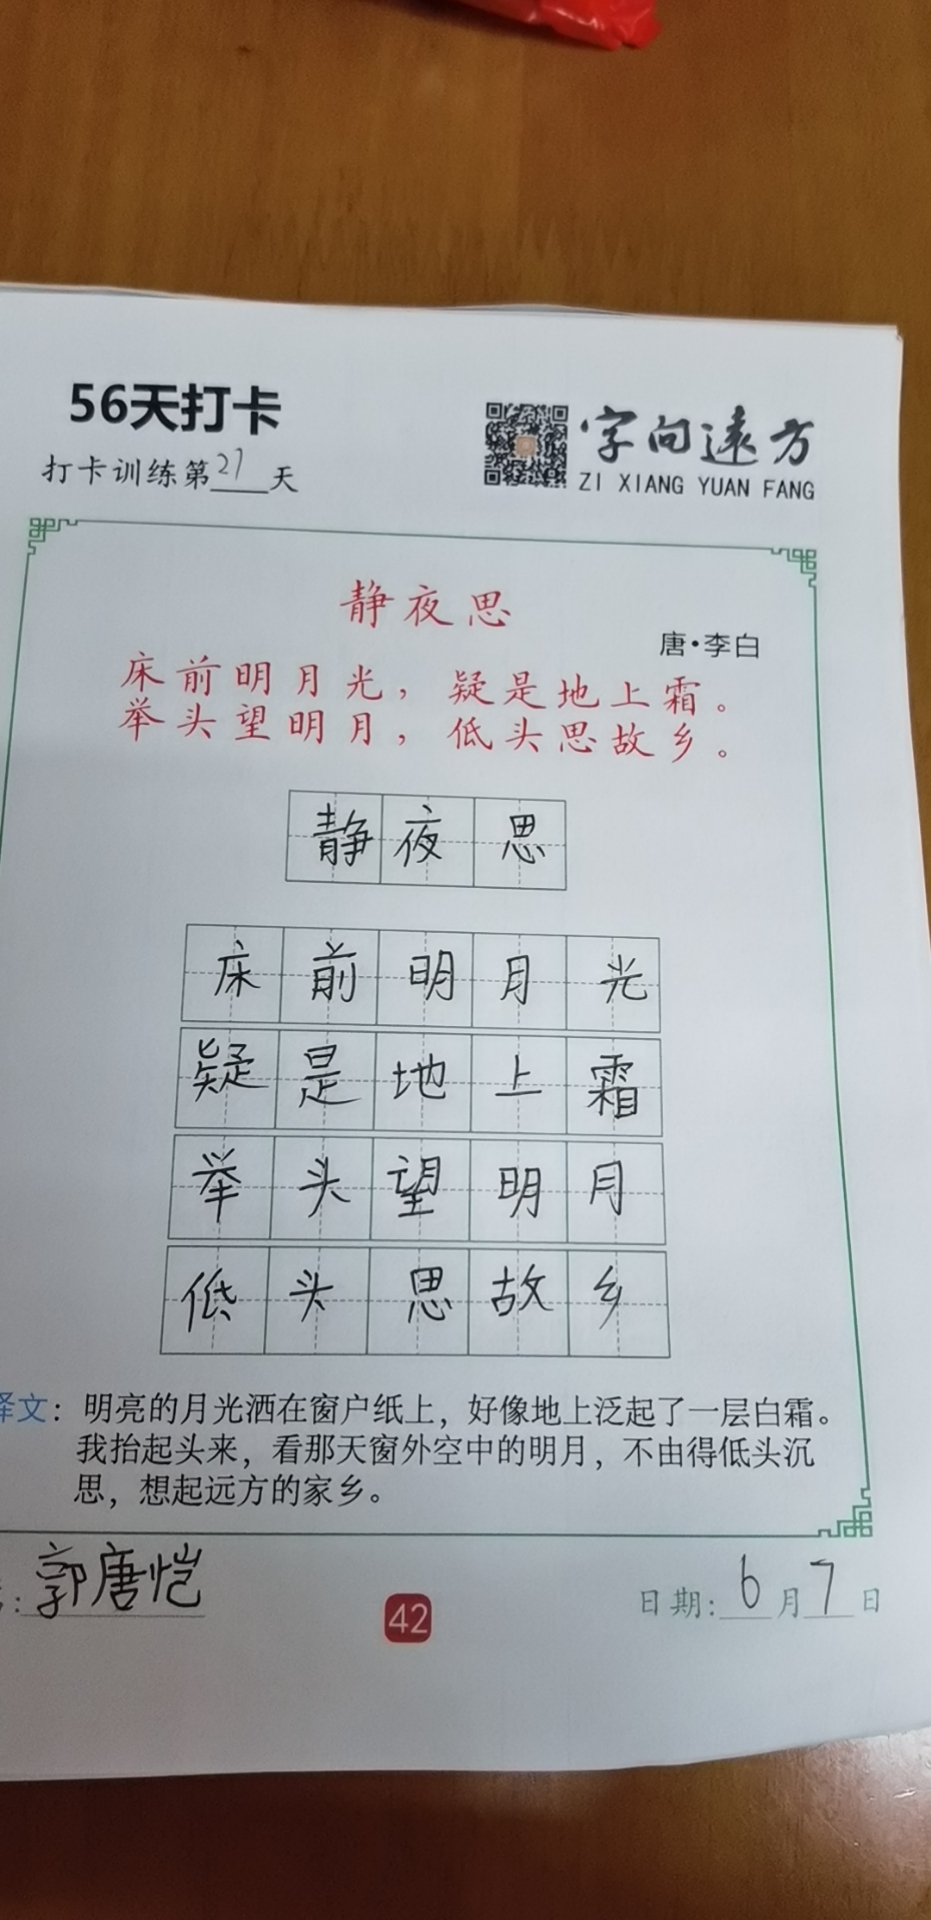 56天打卡
打卡训练第27天
字向遠方
ZI XIANG YUAN FANG
静夜思
唐·李白
床前明月光，疑是地上霜。
举头望明月，低头思故乡。
静夜思
床前明月光
疑是地上霜
举头望明月
低头思故乡
译文：明亮的月光洒在窗户纸上，好像地上泛起了一层白霜。
我抬起头来，看那天窗外空中的明月，不由得低头沉
思，想起远方的家乡。
：郭唐恺
42
日期：6月7日